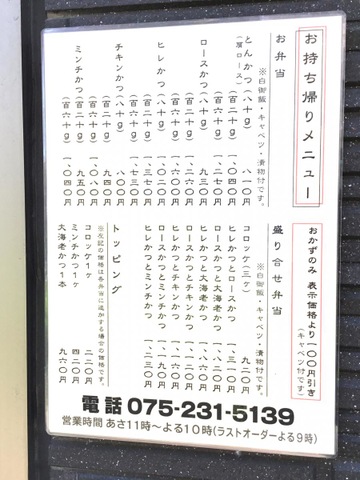 お持ち帰りメニュー
おかずのみ 表示価格より一〇〇円引き
(キャベツ付です)
お弁当
※白御飯・キャベツ・漬物付です。
とんかつ(八十g) 八一〇円
(肩ロース)(百二十g) 一、〇四〇円
(百六十g)
ロースかつ(八十g) 九三〇円
(百二十g)
(百六十g)
ヒレかつ(八十g) 一、〇二〇円
(百二十g) 一、三七〇円
(百六十g) 一、七三〇円
チキンかつ(八十g) 八〇〇円
(百二十g)
(百六十g) 一、〇八〇円
ミンチかつ(百二十g) 九五〇円
(百六十g) 一、〇四〇円
盛り合せ弁当
※白御飯・キャベツ・漬物付です。
コロッケ(三ヶ) 九二〇円
ヒレかつとロースかつ 一、三一〇円
ロースかつと大海老かつ
ヒレかつと大海老かつ
ヒレかつとチキンかつ
ロースかつとチキンかつ
ロースかつとミンチかつ 一、一九〇円
ヒレかつとミンチかつ 一、二三〇円
トッピング
※左記の価格は各弁当に追加する場合の価格です。
コロッケ1ヶ 二一〇円
ミンチかつ1ヶ 四二〇円
大海老かつ1本 九六〇円
電話 075-231-5139
営業時間 あさ11時〜よる10時(ラストオーダーよる9時)